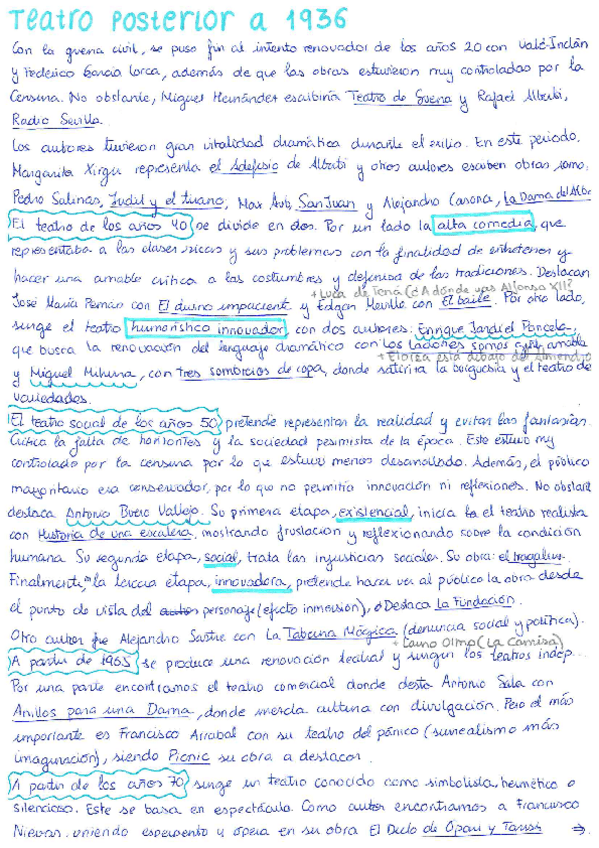 Teatro posterior a 1936
Con la guerra civil, se puso fin al intento renovador de los años 20 con Valé-Inclán
y Federico García Lorca, además de que las obras estuvieron muy controladas por la
Censura. No obstante, Miguel Hernández escribiría Teatro de Guerra y Rafael Alberti,
Radio Sevilla.
Los autores tuvieron gran vitalidad dramática durante el exilio. En este periodo,
Margarita Xirgu representa el Adefesio de Alberti y otros autores escriben obras como:
Pedro Salinas, Judit y el tirano, Max Aub, San Juan y Alejandro Casona, La Dama del Alba.
El teatro de los años 40 se divide en dos. Por un lado la alta comedia, que
representaba a las clases ricas y sus problemas con la finalidad de entretener y
hacer una amable crítica a las costumbres y defensa de las tradiciones. Destacan
+ Luca de Tena (¿A dónde vas Alfonso XII?
José María Pemán con El divino impaciente y Edgar Neville con El baile. Por otro lado,
surge el teatro humorístico innovador, con dos autores: Enrique Jardiel Poncela,
que busca la renovación del lenguaje dramático con los ladrones somos gente honrada
+ Eloísa está debajo del Almendro
y Miguel Mihura, con tres sombreros de copa, donde satiriza la burguesía y el teatro de
variedades.
El teatro social de los años 50 pretende representar la realidad y evitar las fantasías.
Critica la falta de horizontes y la sociedad pesimista de la época. Este estuvo muy
controlado por la censura por lo que estuvo menos desarrollado. Además, el público
mayoritario era conservador, por lo que no permitía innovación ni reflexiones. No obstante
destaca Antonio Buero Vallejo. Su primera etapa, existencial, inicia la el teatro realista
con Historia de una escalera, mostrando frustación y reflexionando sobre la condición
humana. Su segunda etapa, social, trata las injusticias sociales. Su obra: el tragaluz.
Finalmente, en la tercera etapa, innovadora, pretende hacer ver al público la obra desde
el punto de vista del personaje (efecto inmersión), Destaca La Fundación.
Otro autor fue Alejandro Sastre con La Taberna Mágica (denuncia social y política).
+ Lauro Olmo (La Camisa)
A partir de 1965 se produce una renovación teatral y surgen los teatros indep..
Por una parte encontramos el teatro comercial donde desta Antonio Gala con
Anillos para una Dama, donde mezcla cultura con divulgación. Pero el más
importante es Francisco Arrabal con su teatro del pánico (surrealismo más
imaginación), siendo Picnic su obra a destacar.
A partir de los años 70 surge un teatro conocido como simbolista, hermético o
silencioso. Este se basa en espectáculo. Como autor encontramos a Francisco
Nievas, uniendo esperpento y ópera en su obra El Duelo de Opalí y Tasia →